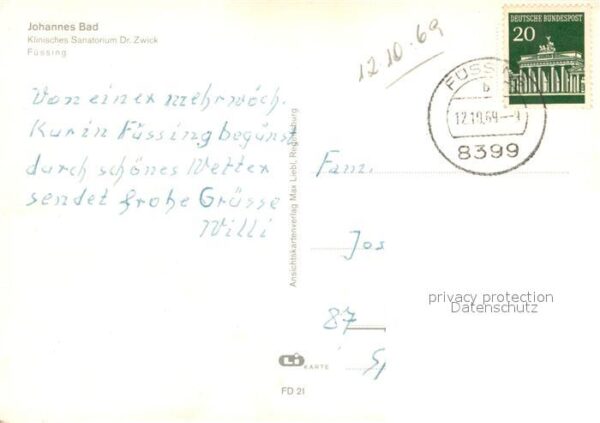 Johannes Bad
Klinisches Sanatorium Dr. Zwick
Füssing
12.10.69
DEUTSCHE BUNDESPOST
20
FÜSS
b
12.10.69-
8399
Von einer mehrwöch.
Kur in Füssing begünst
durch schönes Wetter
sendet frohe Grüsse
Willi
Ansichtskartenverlag Max Liebl, Regensburg
Fam.
Jos
87
privacy protection
Datenschutz
Li KARTE
FD 21